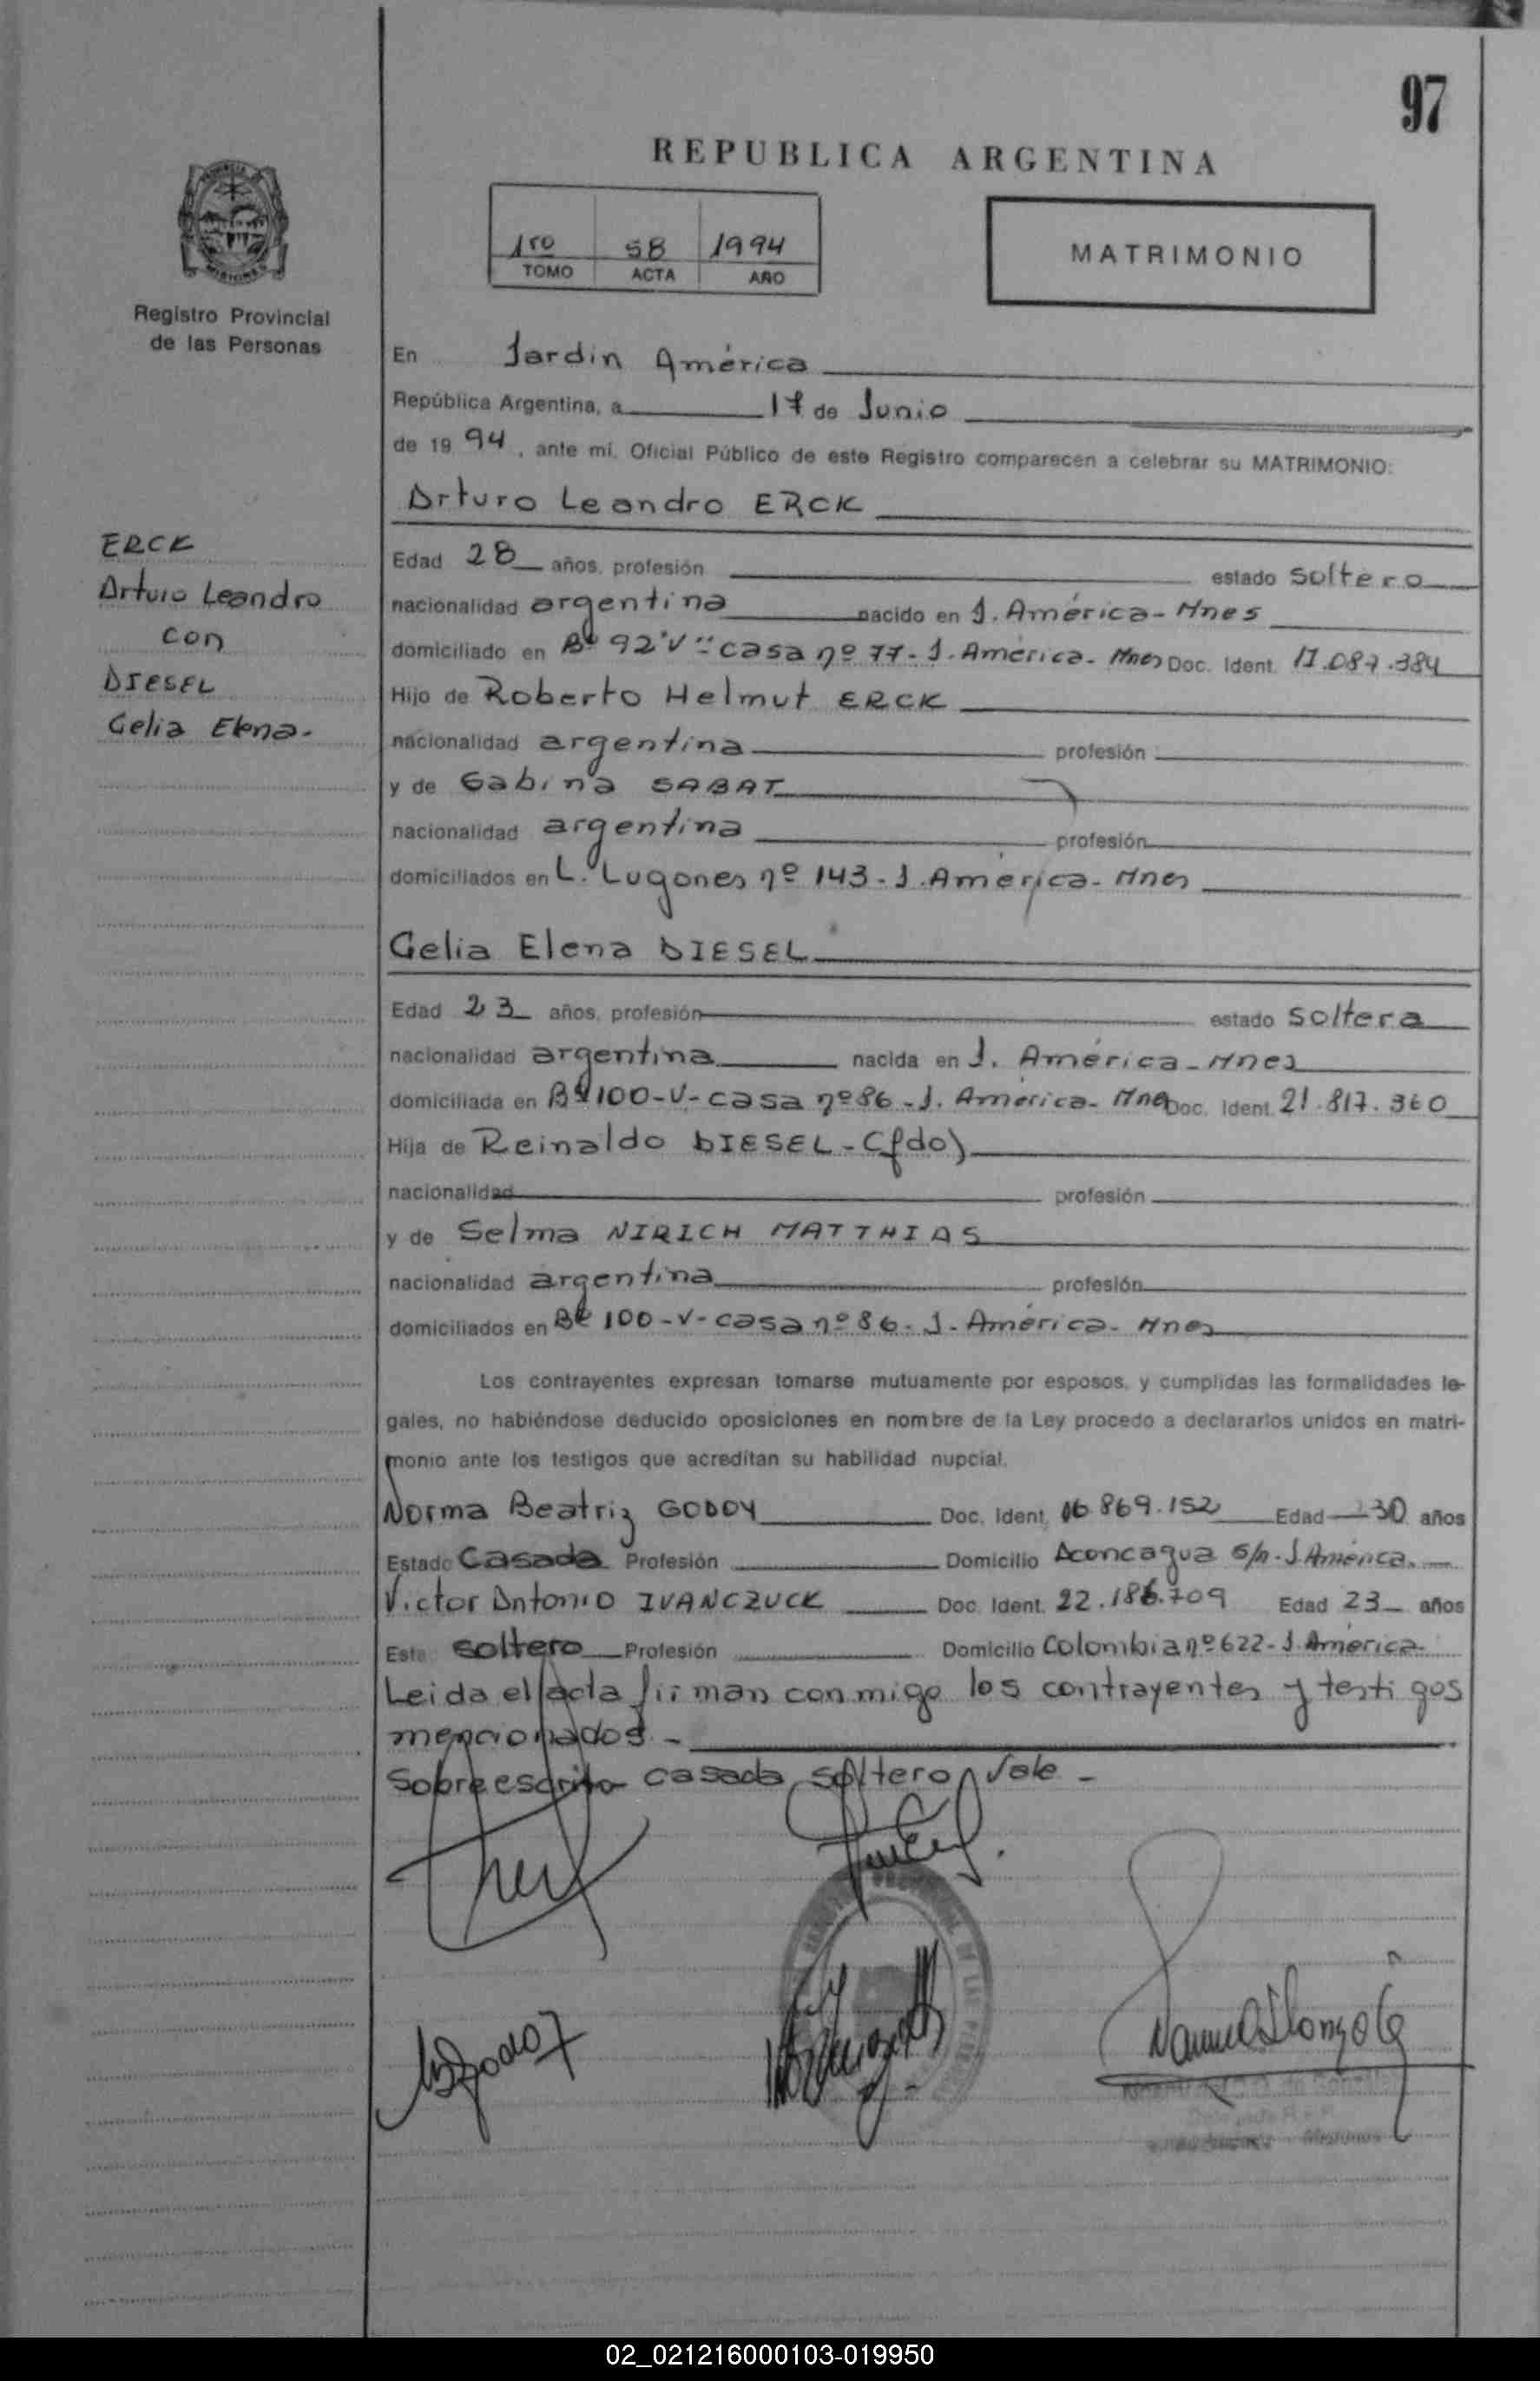 97
REPUBLICA ARGENTINA
1ro 58 1994
TOMO ACTA AÑO
MATRIMONIO
Registro Provincial
de las Personas
En Jardín América
República Argentina, a 17 de Junio
de 19 94, ante mí, Oficial Público de este Registro comparecen a celebrar su MATRIMONIO:
Arturo Leandro ERCK
ERCK
Arturo Leandro
con
DIESEL
Celia Elena.-
Edad 28 años, profesión estado soltero
nacionalidad argentina nacido en J. América - Mnes
domiciliado en Bº 92 "V" - casa nº 77 - J. América - Mnes Doc. Ident. 17.087.384
Hijo de Roberto Helmut ERCK
nacionalidad argentina profesión
y de Gabina SABAT
nacionalidad argentina profesión
domiciliados en L. Lugones nº 143 - J. América - Mnes
Celia Elena DIESEL
Edad 23 años, profesión estado soltera
nacionalidad argentina nacida en J. América - Mnes
domiciliada en Bº 100-V- casa nº 86 - J. América - Mnes Doc. Ident. 21.817.360
Hija de Reinaldo DIESEL - (fdo)
nacionalidad profesión
y de Selma NIRICH MATTHIAS
nacionalidad argentina profesión
domiciliados en Bº 100-V- casa nº 86 - J. América - Mnes
Los contrayentes expresan tomarse mutuamente por esposos, y cumplidas las formalidades le-
gales, no habiéndose deducido oposiciones en nombre de la Ley procedo a declararlos unidos en matri-
monio ante los testigos que acreditan su habilidad nupcial.
Norma Beatriz GODOY Doc. Ident. 16.869.152 Edad 30 años
Estado Casada Profesión Domicilio Aconcagua s/n - J. América.
Victor Antonio IVANCZUCK Doc. Ident. 22.186.709 Edad 23 años
Esta soltero Profesión Domicilio Colombia nº 622 - J. América
Leida el acta firman conmigo los contrayentes y testigos
mencionados -
Sobreescrito casada, soltero, Vale -
02_021216000103-019950